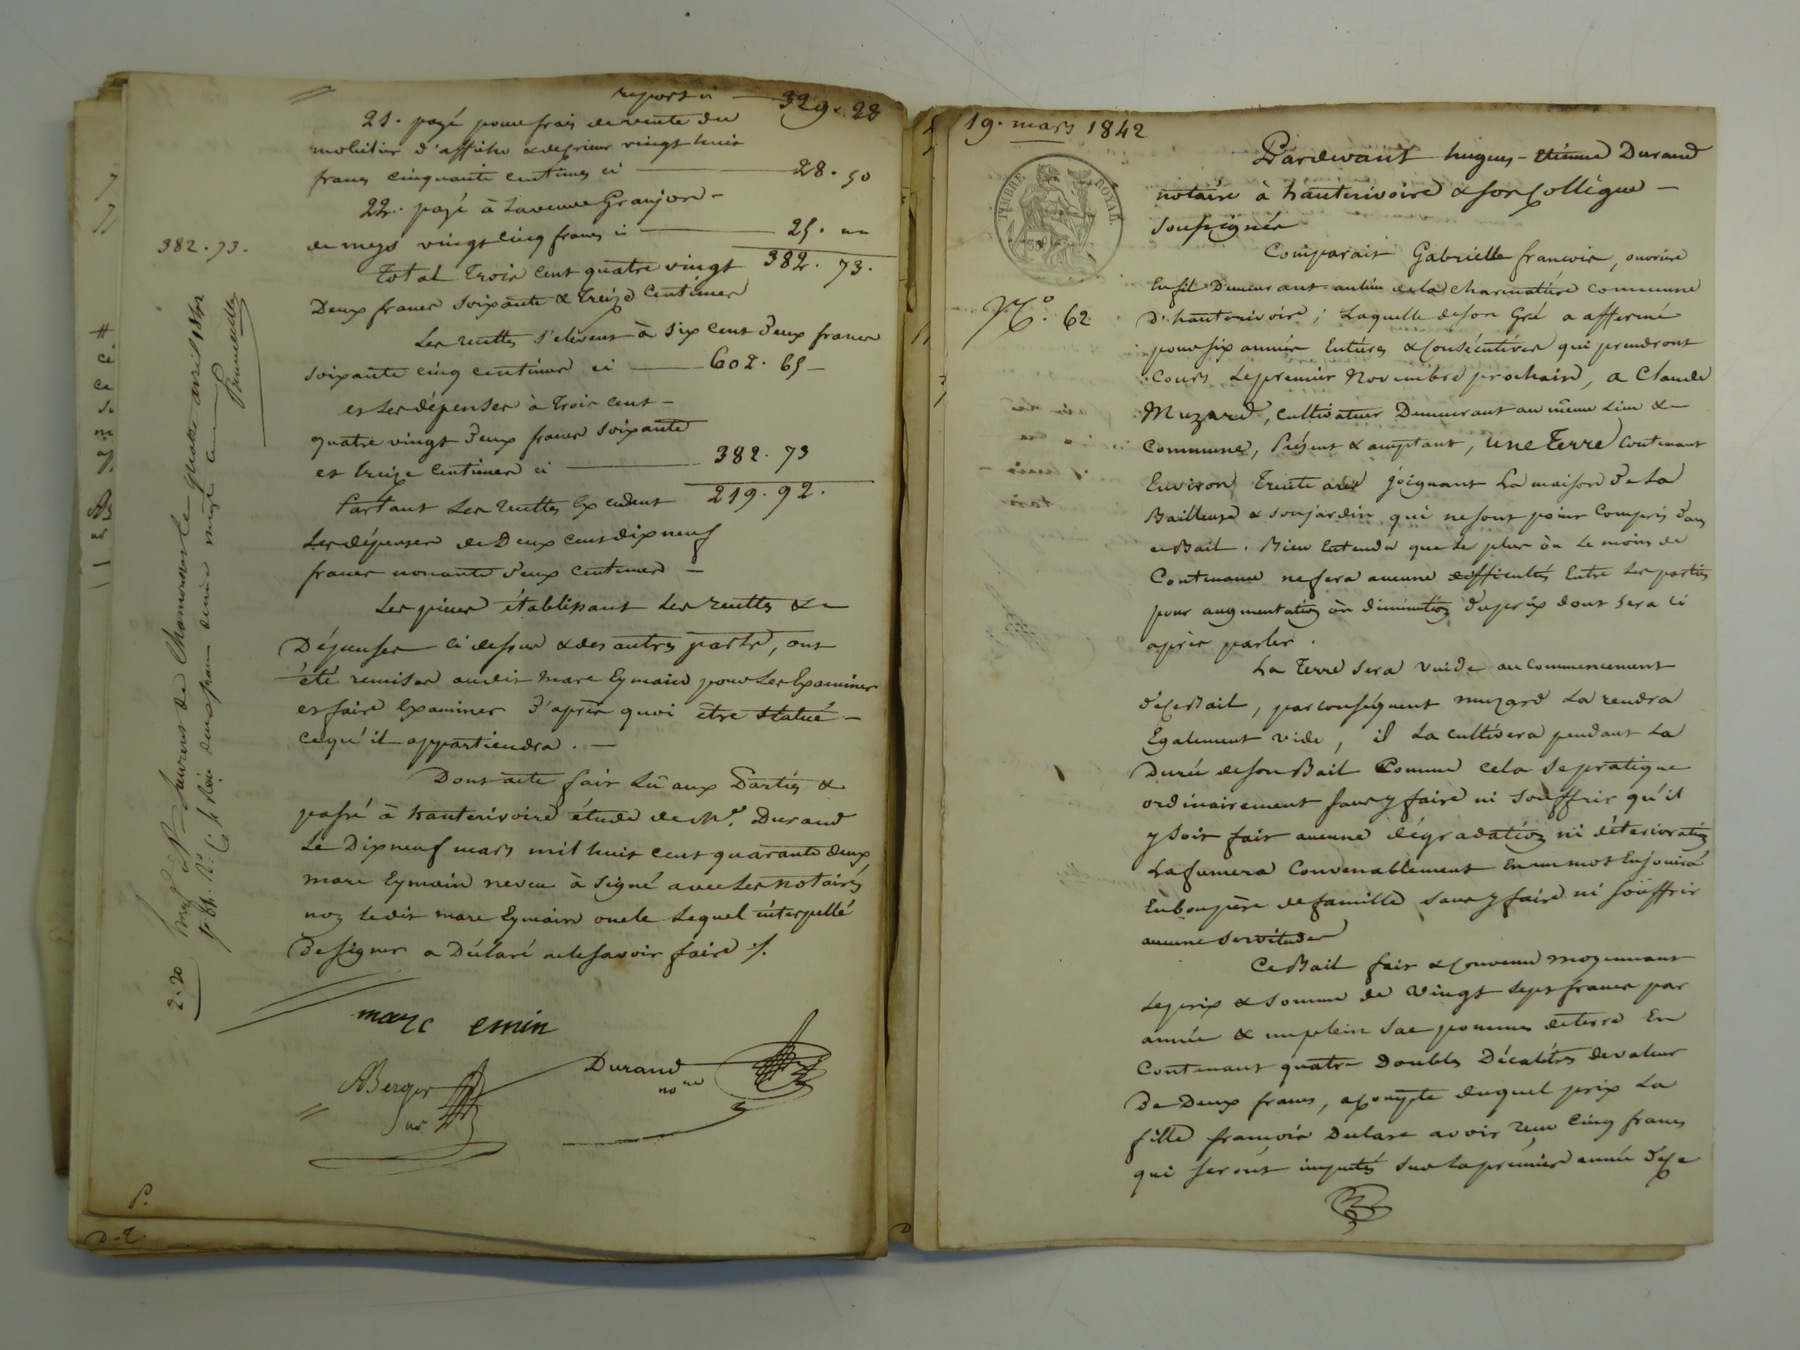 report ci — 329. 28
21. payé pour frais de vente du
mobilier d'affiche & de crieur vingt huit
francs cinquante centimes ci — 28. 50
22. payé à la veuve Granjon -
de meys vingt cinq francs ci — 25. "
Total trois cent quatre vingt 382. 73.
382. 73.
Deux francs soixante & treize Centimes
Les recettes s'élèvent à six cent deux francs
soixante cinq centimes ci — 602. 65 -
et les dépenses à trois cent -
quatre vingt deux francs soixante
et treize Centimes ci — 382. 73
Partant les recettes Excedent 219. 92.
Les dépenses de Deux cent dix neuf
francs nonante deux centimes -
Les pièces établissant les recettes & -
Dépenses ci dessus & des autres parts, ont
été remises audit marc Eymain pour les Examiner
et faire Examiner d'après quoi être statué -
ce qu'il appartiendra. -
Dont acte fait Lû aux Parties &
passé à hauterivoire étude de Me. Durand
Le Dix neuf mars mil huit cent quarante deux,
marc Eymain neveu à signé avec les notaires
non ledit marc Eymain oncle Lequel interpellé
de signer a Déclaré ne le savoir faire ./.
marc emin
Berger
Durand
nore
St Laurent de Chamousset le quatre avril 1842
2. 20
P.
19. mars 1842
TIMBRE ROYAL
No. 62
Pardevant hugues - etienne Durand
notaire à hauterivoire & son Collègue -
soussignés
Comparait Gabrielle francois, ouvrière
En fil Demeurant au lieu de la Charmatûre commune
D'hauterivoire ; Laquelle de son Gré a affermé
pour six années Entières & Consécutives qui prendront
Cours le premier Novembre prochain, a Claude
Muzard, Cultivateur Demeurant au même Lieu & -
Commune, Présent & acceptant, une Terre Contenant
Environ Trente ares joignant La maison de La
Bailleuse & son jardin qui ne sont point Compris dans
ce Bail. Bien Entendu que le plus ou le moins de
Contenance ne fera aucune difficultés Entre Les parties
pour augmentation ou diminution du prix dont sera ci
après parlé.
La Terre sera vuide au commencement
de ce Bail, par conséquent muzard La rendra
Egalement vide, il La cultivera pendant La
Durée de son Bail Comme cela se pratique
ordinairement sans y faire ni souffrir qu'il
y soit fait aucune dégradation ni déterioration
La fumera Convenablement En un mot En jouira
En bon père de famille sans y faire ni souffrir
aucune servitudes
Ce Bail fait & Convenu moyennant
Le prix & somme de vingt sept francs par
année & un plein sac pommes de terre En
Contenant quatre doubles Décalitres de valeur
De Deux francs, a compte duquel prix La
fille francois Declare avoir reçu Cinq francs
qui seront imputés sur la première année de ce